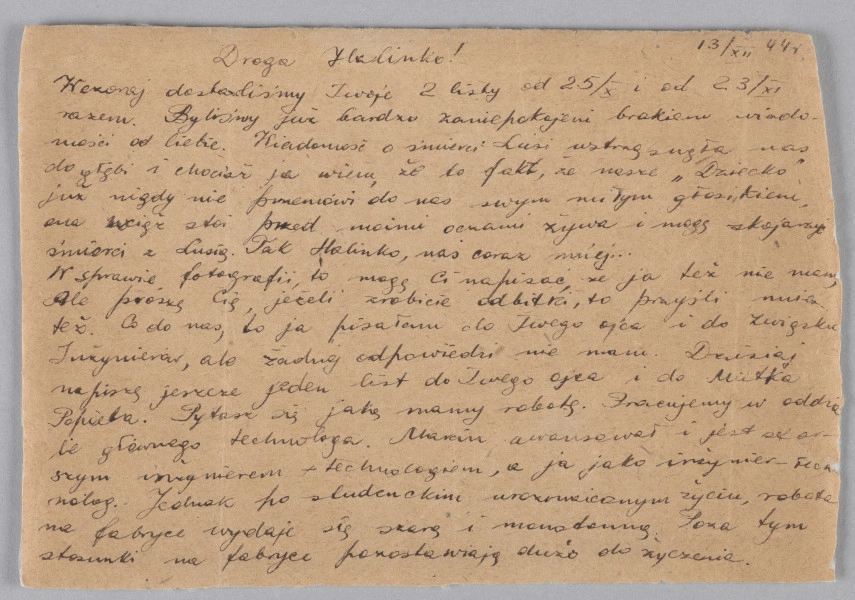 13/XII 44 r.
Droga Halinko!
Wczoraj dostaliśmy Twoje 2 listy od 25/X i od 23/XI
razem. Byliśmy już bardzo zaniepokojeni brakiem wiado-
mości od Ciebie. Wiadomość o śmierci Lusi wstrząsnęła nas
do głębi i chociaż ja wiem, że to fakt, że nasze „Dziecko"
już nigdy nie przemówi do nas swym miłym głosikiem,
ona wciąż stoi przed moimi oczami żywa i mogę skojarzyć
śmierci z Lusią. Tak Halinko, nas coraz mniej...
W sprawie fotografii, to mogę Ci napisać, że ja też nie mam,
Ale proszę Cię, jeżeli zrobicie odbitki, to przyśli mnie
też. Co do nas, to ja pisałam do Twego ojca i do Związku
Inżynierów, ale żadnej odpowiedzi nie mam. Dzisiaj
napiszę jeszcze jeden list do Twego ojca i do Mietka
Popiela. Pytasz się jaką mamy robotę. Pracujemy w oddzia
le głównego technologa. Marcin awansował i jest star-
szym inżynierem - technologiem, a ja jako inżynier-tech
nolog. Jednak po studenckim urozmaiconym życiu, robota
na fabryce wydaje się szarą i monotonną. Poza tym
stosunki na fabryce pozostawiają dużo do życzenia.